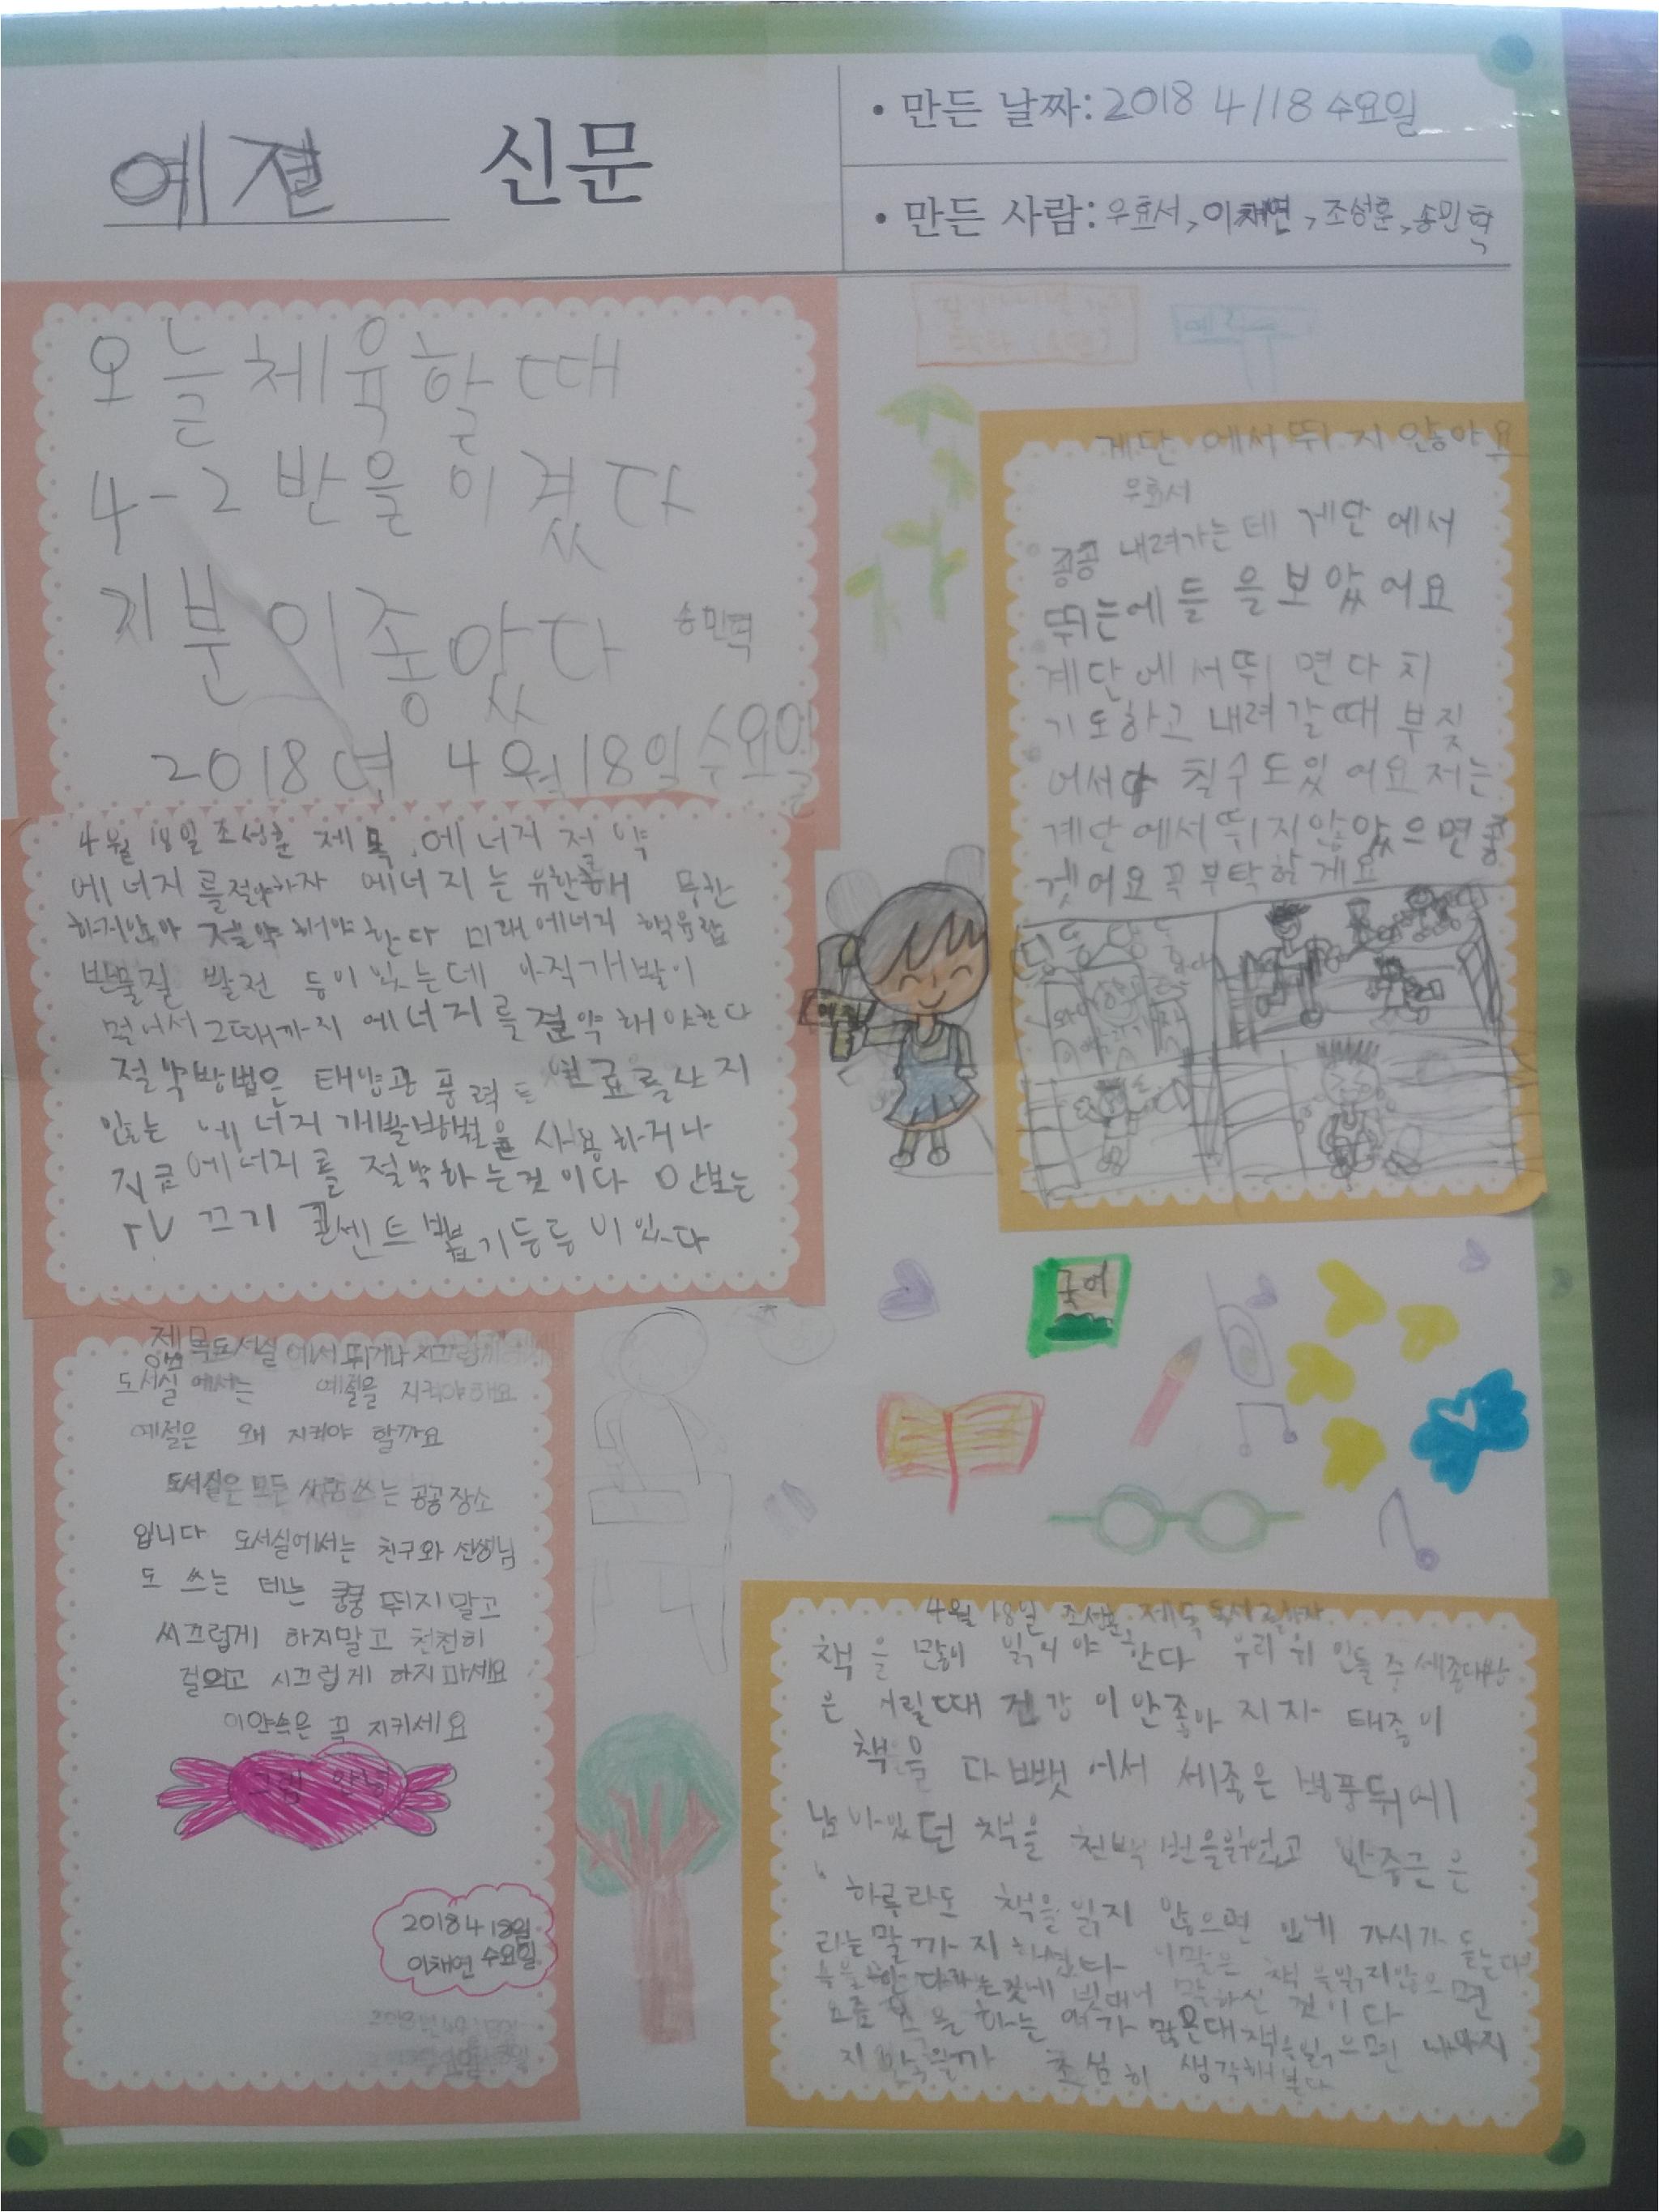 예절 신문
• 만든 날짜: 2018 4/18 수요일
• 만든 사람: 우효서, 이채연, 조성훈, 송민혁
오늘 체육할 때
4-2 반을 이겼다
지분이좋았다 송민혁
2018년 4월 18일 수요일
계단 에서 뛰 지 않아요
우효서
쿵쿵 내려가는 테 계단 에서
뛰는에들 을 보았 어요
계단에서뛰 면다 치
기도하고 내려 갈때 부짖
어서 칠수 도있 어요 저는
계단에서뛰지않았으면좋
겟어요 꼭 부탁할 게요
4월 18일 조성훈 제목 에너지 절약
에너지를절약하자 에너지는 유한해 무한
하지않아 절약해야 한다 미래에너지 핵융합
반물질 발전 등이 있는데 아직개발이
멀어서 그때까지 에너지를 절약해야한다
절약방법은 태양광 풍력 등 연료를사지
않는 에너지 개발방법을 사용하거나
지금 에너지를 절약하는것이다 안보는
TV 끄기 콘센트 뽑기등등이 있다
제목도서실 에서 뛰거나
도서실 에서는 예절을 지켜야해요
예절은 왜 지켜야 할까요
도서실은 모든 사람 쓰는 공공장소
입니다 도서실에서는 친구와 선생님
도 쓰는 테는 쿵쿵 뛰지말고
씨끄럽게 하지말고 천천히
걸으고 시끄럽게 하지마세요
이약속은 꼭 지키세요
그럼 안녕
2018 4 18일
이채연 수요일
국어
4월 18일 조성훈 제목 독서
책을 많이 읽어야 한다 우리 위인들 중 세종대왕
은 어릴때 건강이안좋아 지자 태종이
책을 다 뺏어서 세종은 병풍뒤에
남아있던 책을 천백번을읽었고 안중근은
하루라도 책을 읽지 않으면 입에 가시가 돋는다
라는말까지 하셨다 이말은 책을읽지않으면
빗대어 말하신 것이다
요즘 욕을 하는 애가 많은대 책을읽으면 나아지
지 않을까 조심히 생각해 본다